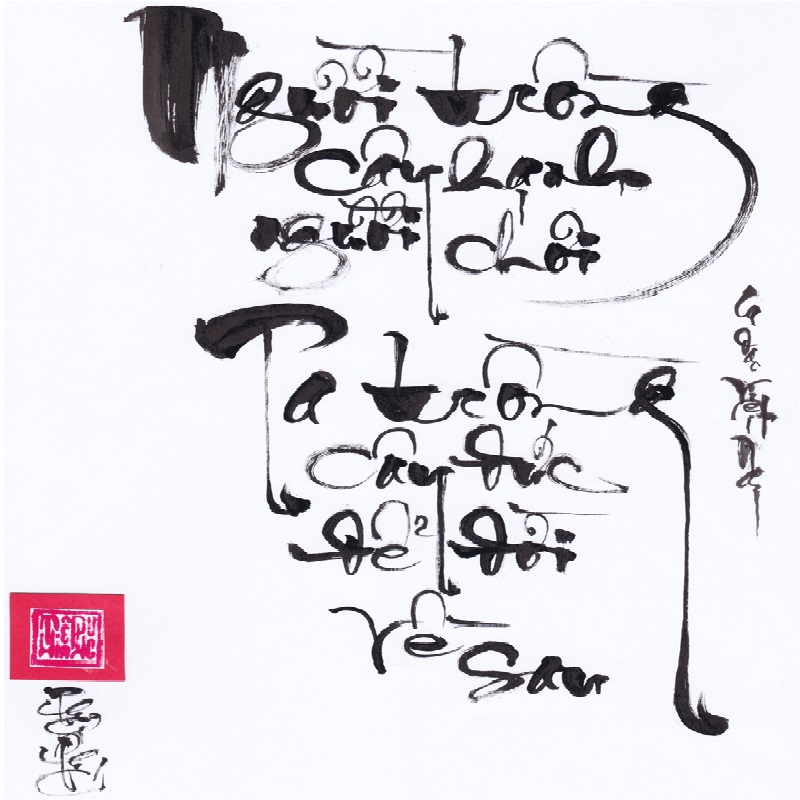 Người trồng
cây hạnh
người chơi
Ta trồng
cây đức
để đời
về sau